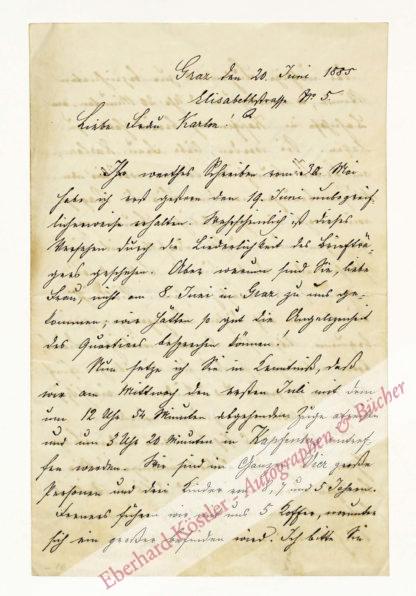 Graz den 20. Juni 1885
Elisabethstrasse No 5.
Liebe Frau Karlon!
Ihr werthes Schreiben vom 30. Mai
habe ich erst gestern den 19. Juni unbegreif-
licherweise erhalten. Wahrscheinlich ist dieses
Versehen durch die Liederlichkeit des Briefträ-
gers geschehen. Aber warum sind Sie, liebe
Frau, nicht am 8. Juni in Graz zu uns ge-
kommen; wir hätten so gut die Angelegenheit
des Quartiers besprechen können.
Nun setze ich Sie in Kenntniß, daß
wir am Mittwoch den ersten Juli mit dem
um 12 Uhr 54 Minuten abgehenden Zuge
und um 3 Uhr 20 Minuten in Kapfenberg
werden. Wir sind im Ganzen Vier große
Personen und drei Kinder von 9, 7 und 5 Jahren.
Ferners führen wir mit uns 5 Koffer, worunter
sich ein großer befinden wird. Ich bitte Sie
Eberhard Köstler - Autographen & Bücher